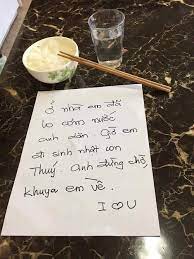 Ở nhà em đã
lo cơm nước
anh dần. Giờ em
đi sinh nhật con
Thuý. Anh đừng chờ,
khuya em về.
I ♡ U